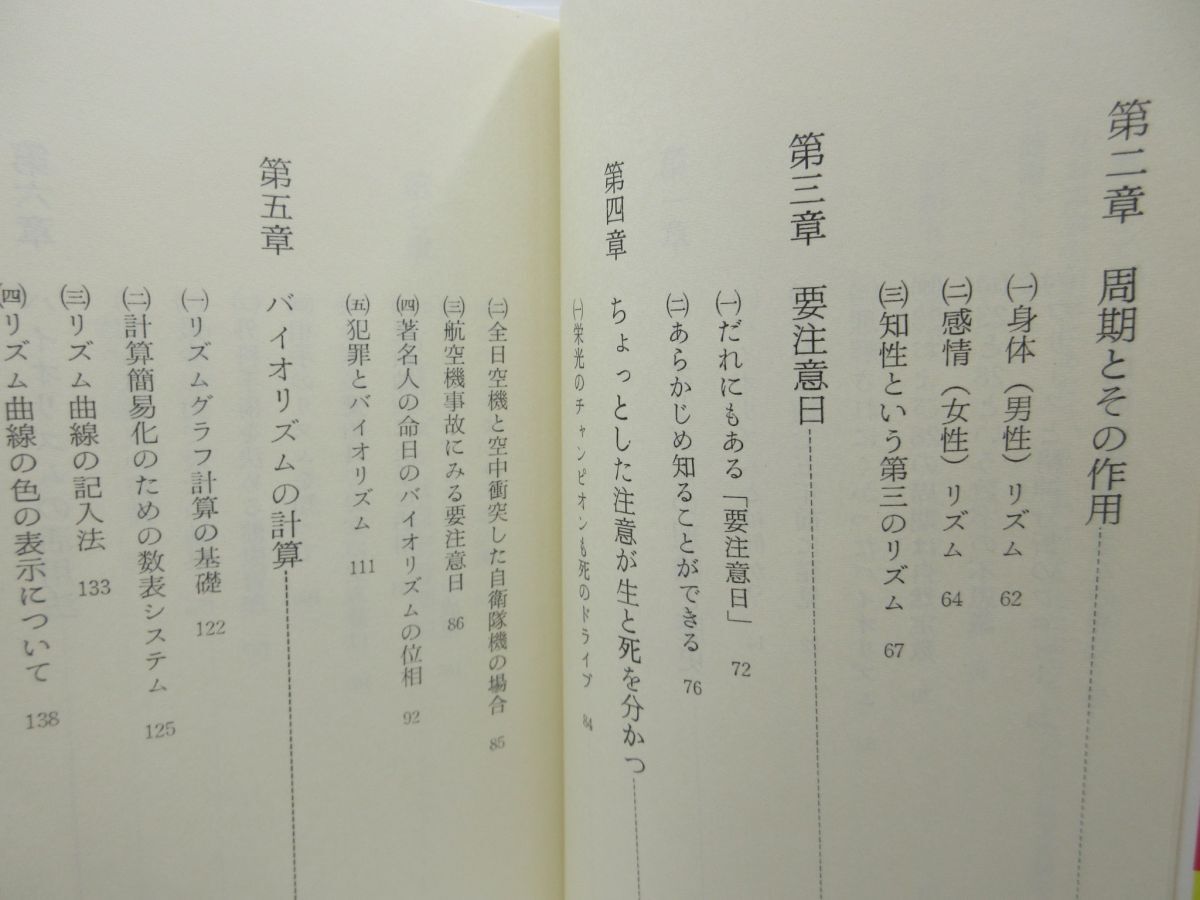 第二章　周期とその作用
㈠身体（男性）リズム　62
㈡感情（女性）リズム　64
㈢知性という第三のリズム　67
第三章　要注意日
㈠だれにもある「要注意日」　72
㈡あらかじめ知ることができる　76
第四章　ちょっとした注意が生と死を分かつ
㈠栄光のチャンピオンも死のドライブ　84
㈡全日空機と空中衝突した自衛隊機の場合　85
㈢航空機事故にみる要注意日　86
㈣著名人の命日のバイオリズムの位相　92
㈤犯罪とバイオリズム　111
第五章　バイオリズムの計算
㈠リズムグラフ計算の基礎　122
㈡計算簡易化のための数表システム　125
㈢リズム曲線の記入法　133
㈣リズム曲線の色の表示について　138